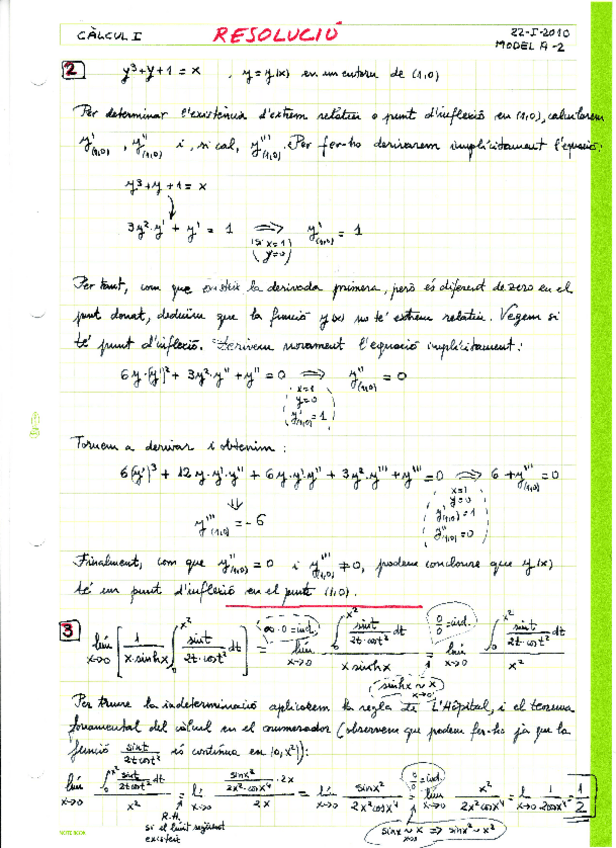 CÀLCUL I RESOLUCIÓ 22-I-2010
MODEL A-2
2 y³+y+1 = x , y=y(x) en un entorn de (1,0)
Per determinar l'existència d'extrem relatiu o punt d'inflexió en (1,0), calcularem
y'(1,0) , y''(1,0) i, si cal, y'''(1,0). Per fer-ho derivarem implícitament l'equació:
y³+y+1 = x
3y²·y' + y' = 1 ⟹ (si x=1, y=0) y'(1,0) = 1
Per tant, com que existeix la derivada primera, però és diferent de zero en el
punt donat, deduïm que la funció y(x) no té extrem relatiu. Vegem si
té punt d'inflexió. Derivem novament l'equació implícitament:
6y·(y')² + 3y²·y'' + y'' = 0 ⟹ (x=1, y=0, y'(1,0)=1) y''(1,0) = 0
Tornem a derivar i obtenim:
6(y')³ + 12y·y'·y'' + 6y·y'·y'' + 3y²·y''' + y''' = 0 ⟹ (x=1, y=0, y'(1,0)=1, y''(1,0)=0) 6 + y'''(1,0) = 0
⇓
y'''(1,0) = -6
Finalment, com que y''(1,0) = 0 i y'''(1,0) ≠ 0, podem concloure que y(x)
té un punt d'inflexió en el punt (1,0).
3 lím x→0 [1/(x·sinhx) ∫₀^x² sint/(2t·cost²) dt] = (∞·0=ind.) lím x→0 (∫₀^x² sint/(2t·cost²) dt)/(x sinhx) = (0/0=ind.) lím x→0 (∫₀^x² sint/(2t·cost²) dt)/x²
(sinhx ~ x x→0)
Per treure la indeterminació aplicarem la regla de L'Hôpital, i el teorema
fonamental del càlcul en el numerador (observem que podem fer-ho ja que la
funció sint/(2tcost²) és contínua en (0,x²)):
lím x→0 (∫₀^x² sint/(2tcost²) dt)/x² = lí x→0 (sinx²/(2x²·cosx⁴) ·2x)/2x = lím x→0 sinx²/(2x²cosx⁴) = (0/0=ind) lím x→0 x²/(2x²cosx⁴) = lí x→0 1/(2cosx⁴) = 1/2
R.H.
si el límit següent
existeix
sinx ~ x x→0 ⟹ sinx² ~ x²
NOTEBOOK